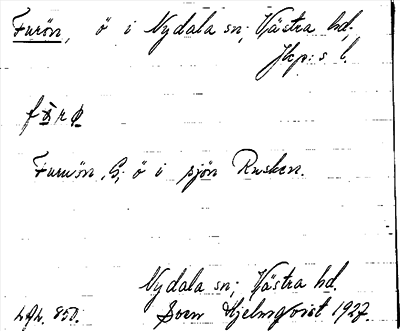 Furön, ö i Nydala sn; Västra hd;
Jkp:s l.
Furuön, G; ö i sjön Rusken.
Nydala sn; Västra hd.
Lgh. 850. Sven Hjelmqvist 1927.